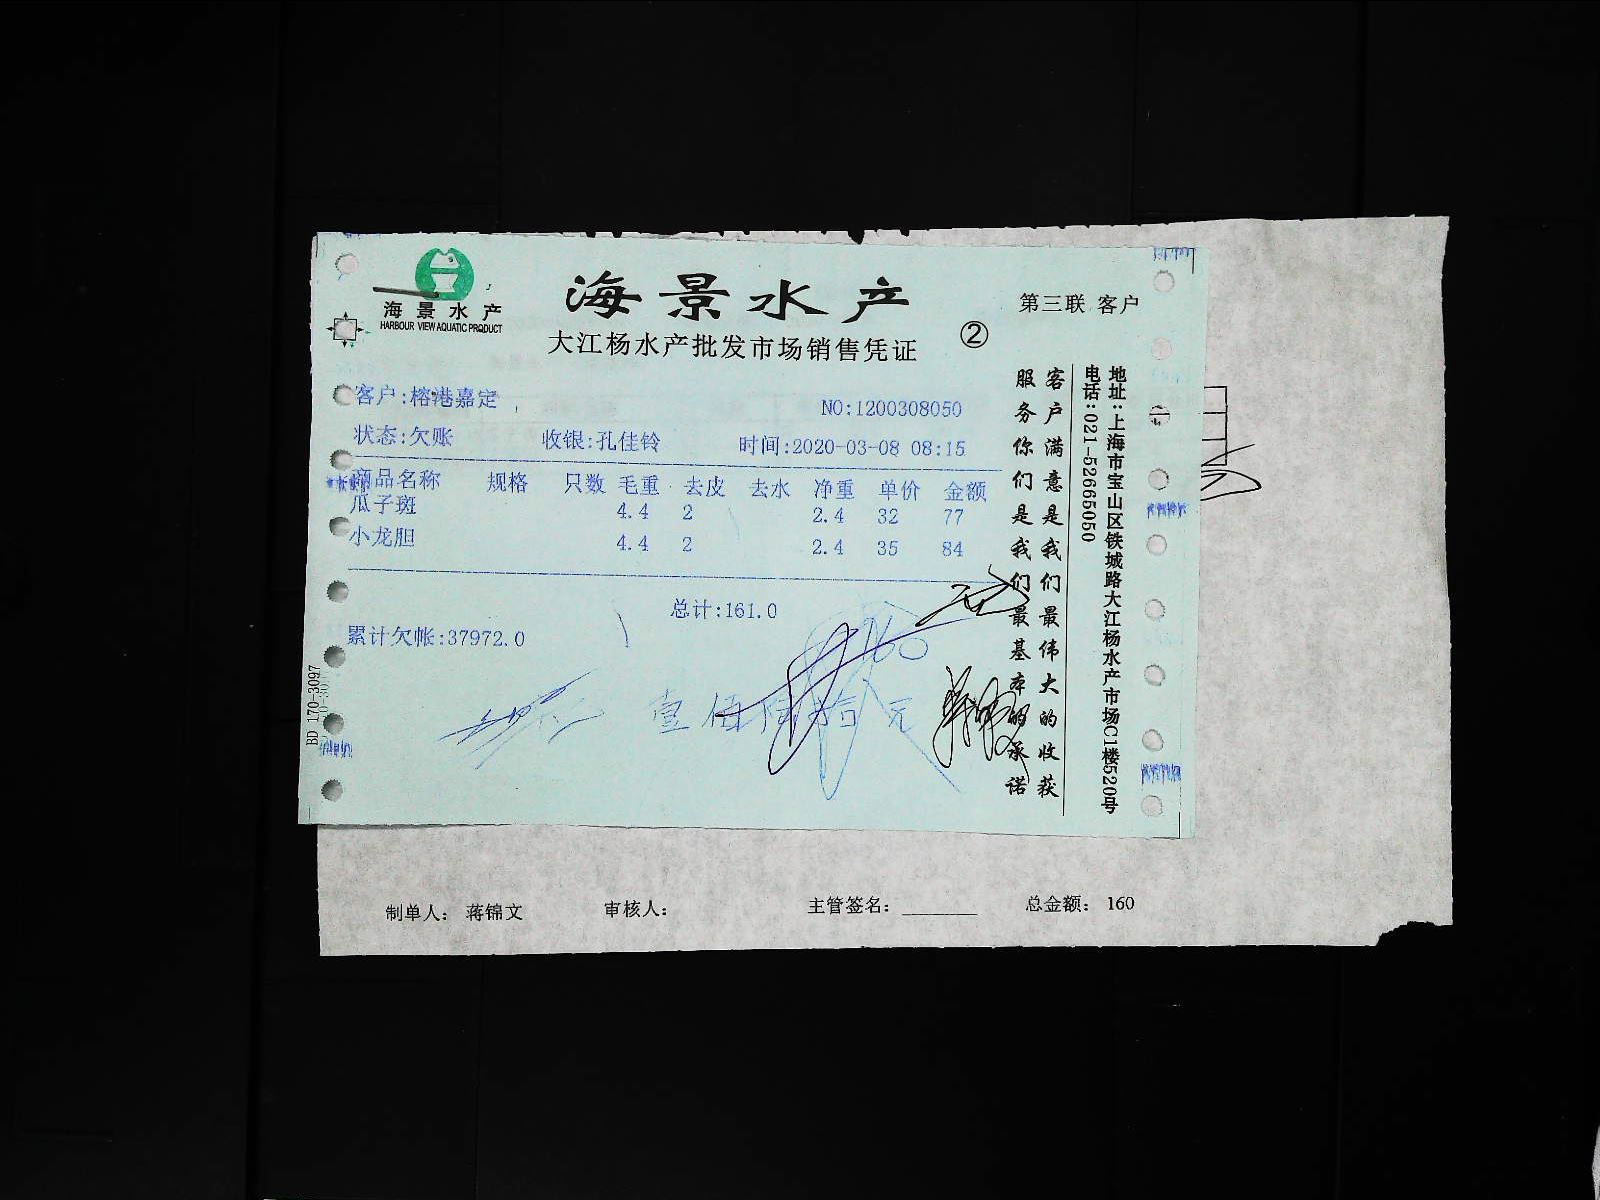 海景水产
HARBOUR VIEW AQUATIC PRODUCT
海景水产
大江杨水产批发市场销售凭证
②
第三联 客户
客户:榕港嘉定
NO:1200308050
状态:欠账 收银:孔佳铃 时间:2020-03-08 08:15
商品名称 规格 只数 毛重 去皮 去水 净重 单价 金额
瓜子斑 4.4 2 2.4 32 77
小龙胆 4.4 2 2.4 35 84
总计:161.0
累计欠帐:37972.0
160
壹佰陆拾元
客户满意是我们最伟大的收获
服务你们是我们最基本的承诺
地址:上海市宝山区铁城路大江杨水产市场C1楼520号
电话:021-52665050
BD 170-3097
制单人: 蒋锦文 审核人: 主管签名: 总金额: 160